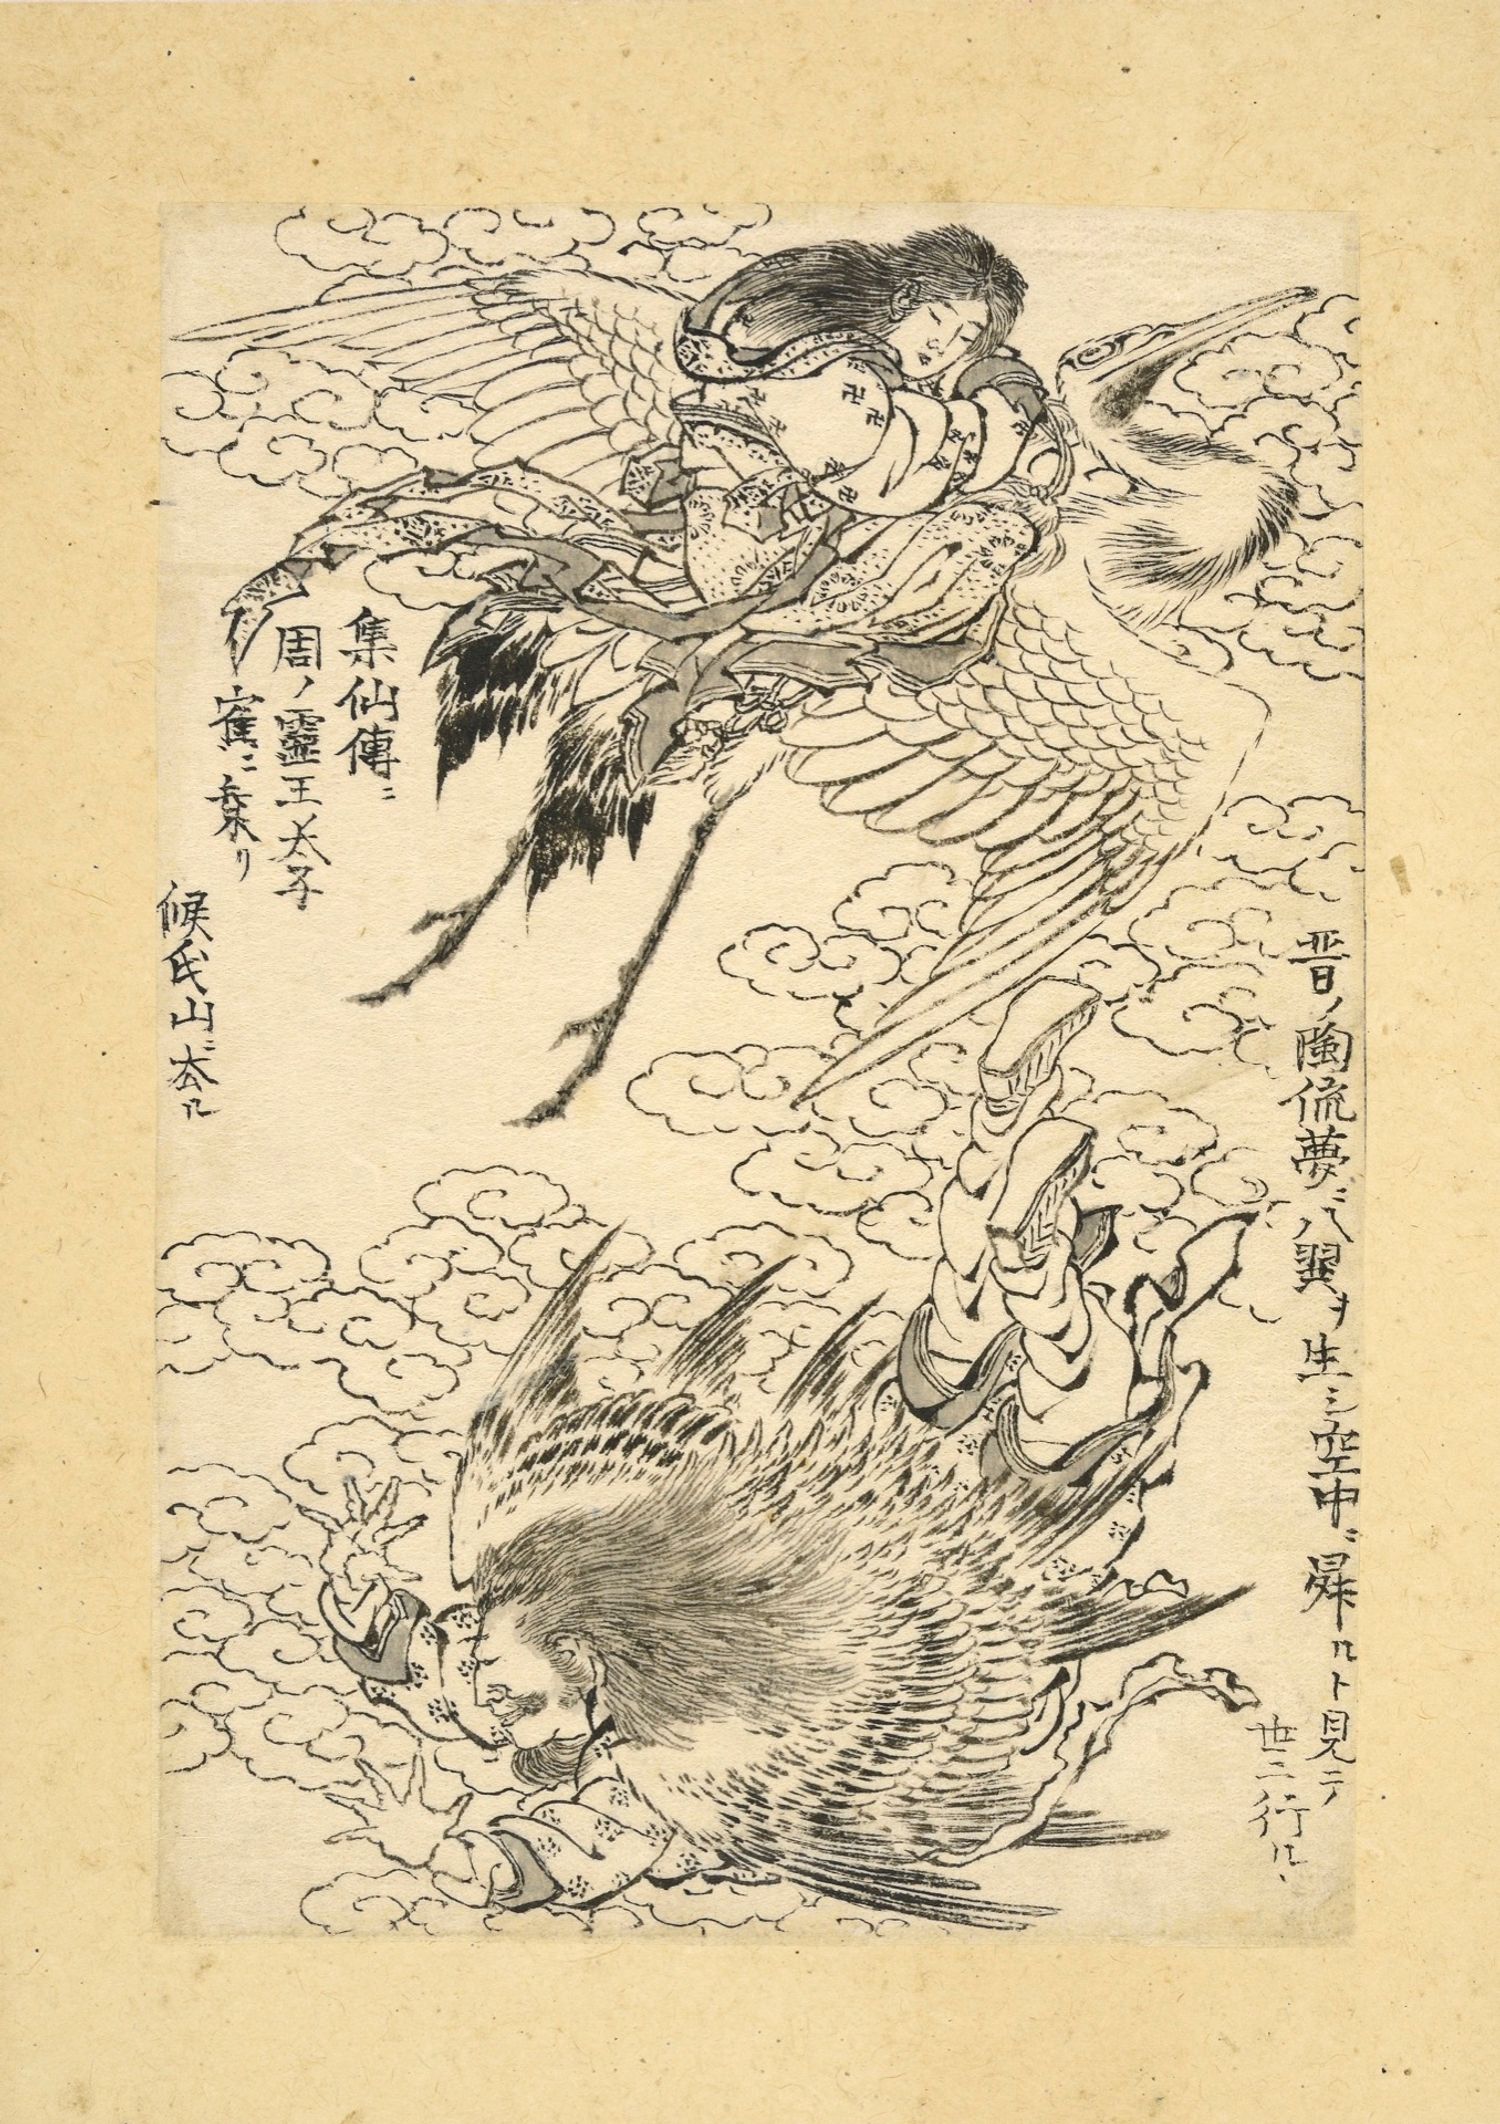 晋ノ陶流夢ニ八翼ヲ生シ空中ニ舜ルト見テ
世ニ行ル
集仙傳ニ
周ノ靈王ノ太子
寉ニ乗リ
候氏山ニ太ル